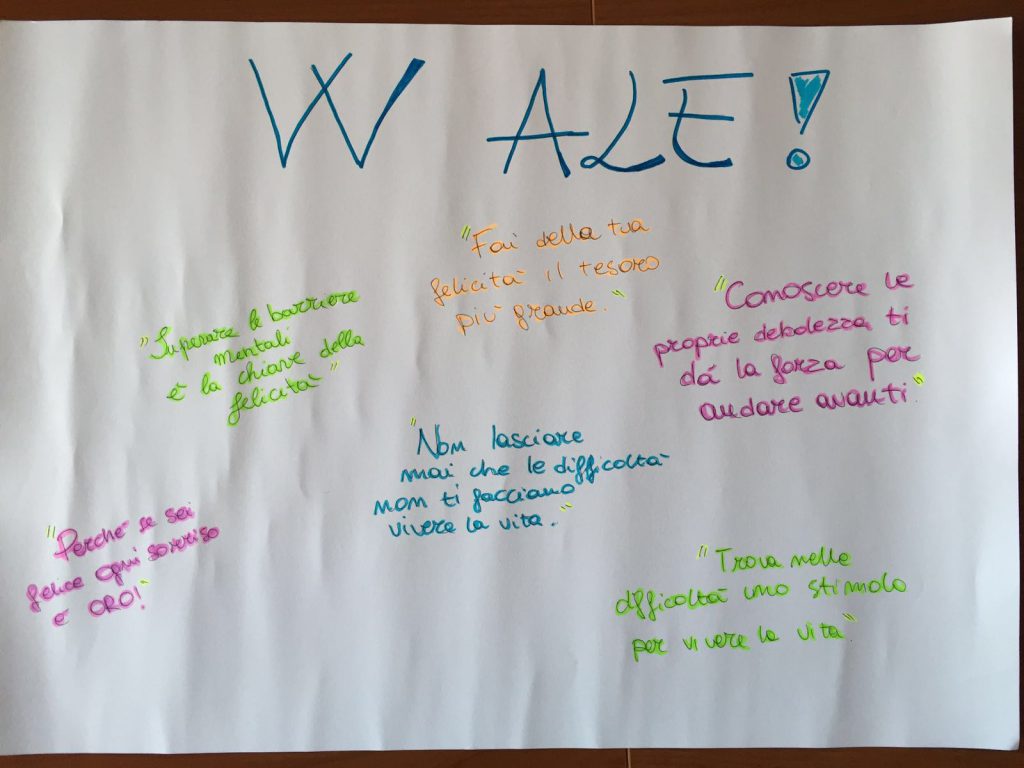 W ALE!
"Fai della tua
felicità il tesoro
più grande."
"Superare le barriere
mentali
è la chiave della
felicità"
"Conoscere le
proprie debolezza ti
dá la forza per
andare avanti"
"Non lasciare
mai che le difficoltà
non ti facciano
vivere la vita."
"Perché se sei
felice ogni sorriso
è ORO!"
"Trova nelle
difficoltà uno stimolo
per vivere la vita"